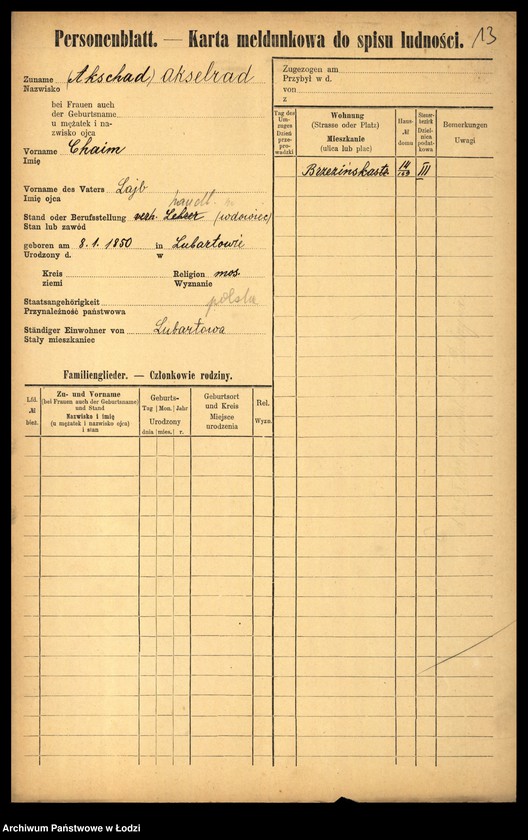 Personenblatt. — Karta meldunkowa do spisu ludności. 13
Zuname (Akschad) Akselrad
Nazwisko
bei Frauen auch
der Geburtsname
u mężatek i na-
zwisko ojca
Vorname Chaim
Imię
Vorname des Vaters Lajb
Imię ojca
handl.
Stand oder Berufsstellung verh. Lehrer (wdowiec)
Stan lub zawód
geboren am 8. 1. 1850 in Lubartowie
Urodzony d. w
Kreis Religion mos.
ziemi Wyznanie
Staatsangehörigkeit polska
Przynależność państwowa
Ständiger Einwohner von Lubartowa
Stały mieszkaniec
Zugezogen am
Przybył w d.
von
z
Tag des
Um-
zuges
Dzień
prze-
prowadzki
Wohnung
(Strasse oder Platz)
Mieszkanie
(ulica lub plac)
Haus-
№
domu
Steuer-
bezirk
Dziel-
nica
podat-
kowa
Bemerkungen
Uwagi
Brzezińskastr. 14/169 III
Familienglieder. — Członkowie rodziny.
Lfd.
№
bież.
Zu- und Vorname
(bei Frauen auch der Geburtsname)
und Stand
Nazwisko i imię
(u mężatek i nazwisko ojca)
i stan
Geburts-
Tag Mon. Jahr
Urodzony
dnia mies. r.
Geburtsort
und Kreis
Miejsce
urodzenia
Rel.
Wyzn.
Archiwum Państwowe w Łodzi